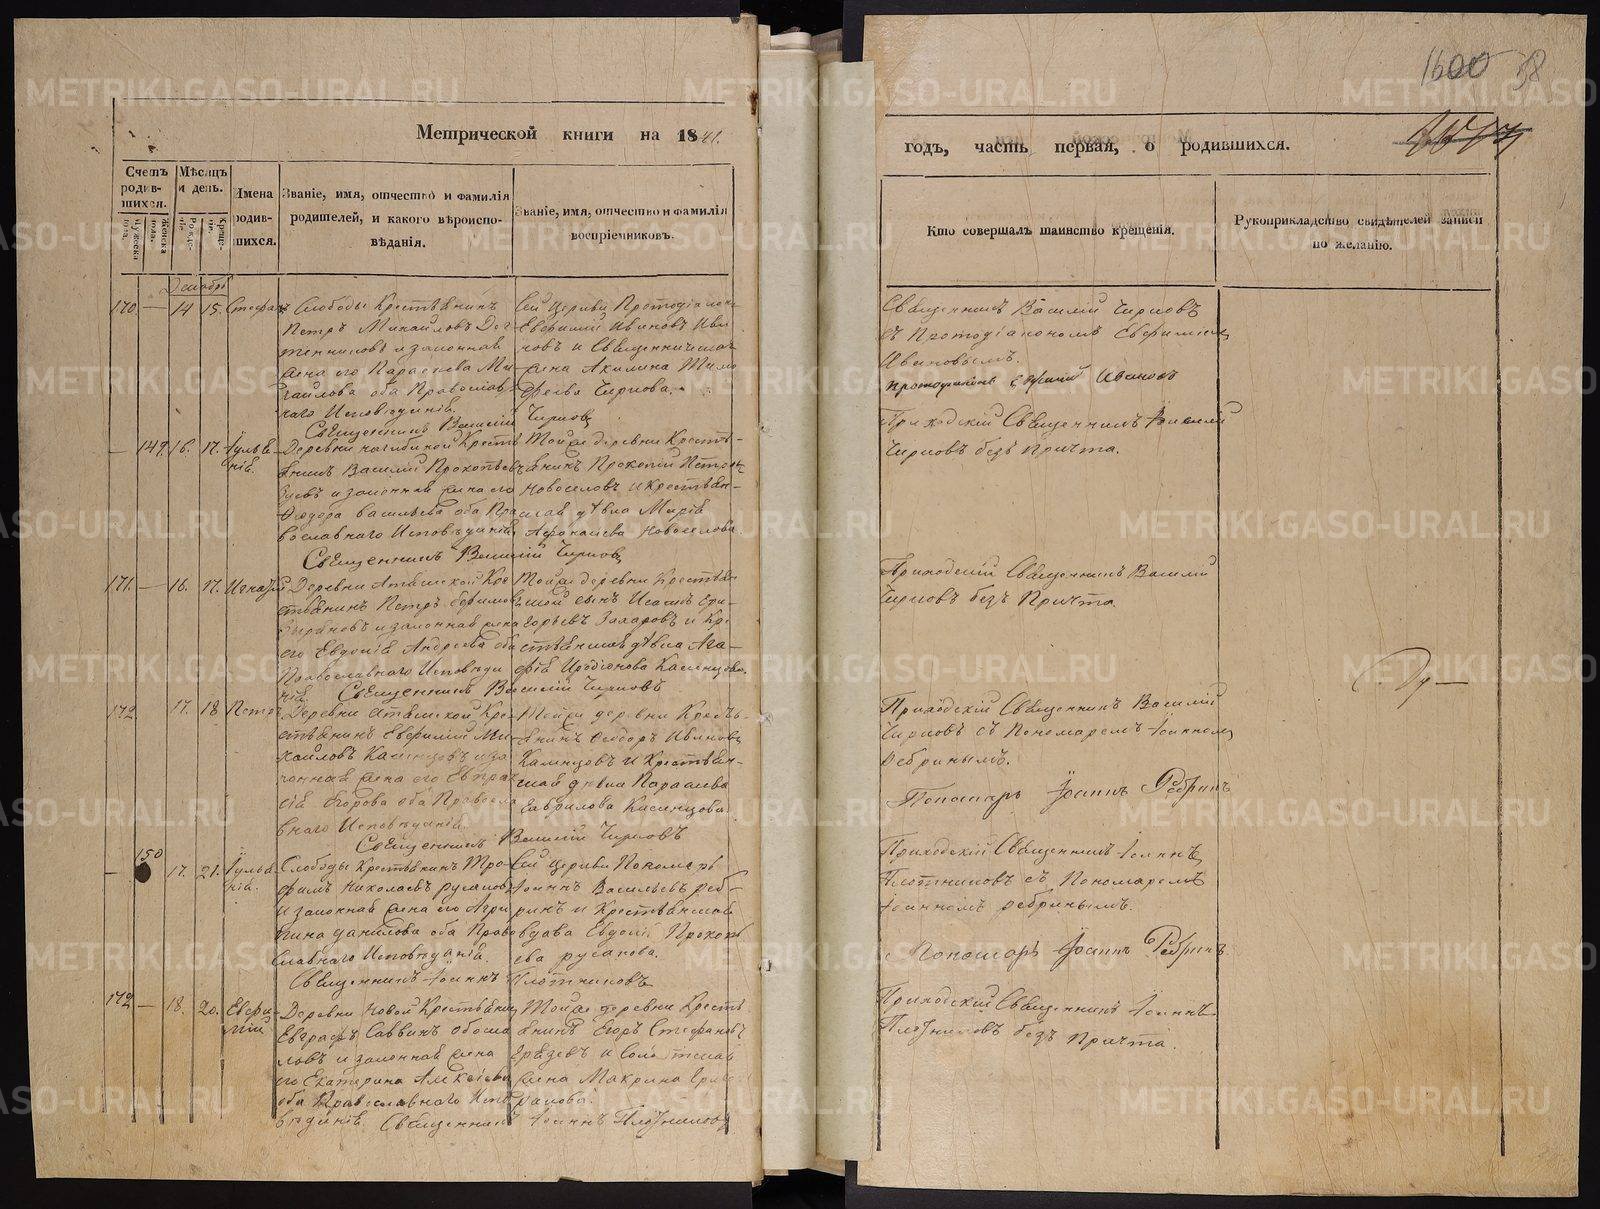 1600 58
Метрической книги на 1841.
годъ, часть первая, о родившихся.
Счетъ родив-
шихся.
Мужеска пола.
Женска пола.
Мѣсяцъ
и день.
Рожде-
нія.
Креще-
нія.
Имена
родив-
шихся.
Званіе, имя, отчество и фамилія
родителей, и какого вѣроиспо-
вѣданія.
Званіе, имя, отчество и фамилія
воспріемниковъ.
Кто совершалъ таинство крещенія.
Рукоприкладство свидѣтелей записи
по желанію.
Декабрь
170. — 14 15. Стефанъ
Слободы Крестьянинъ
Петръ Михайловъ
и законная
жена его Параскева Ми-
хайлова оба Православ-
наго Исповѣданія.
Сей Церкви Протодіаконъ
Евфимій Ивановъ Ива-
новъ и Священническая
жена Акилина Тимо-
феева Чирнова.
Священникъ Василій Чирновъ
Священникъ Василій Чирновъ
съ Протодіакономъ Евфиміемъ
Ивановымъ.
Протодіаконъ Евфимій Ивановъ
— 149. 16. 17. Іуліа-
нія.
Деревни Крестья-
нинъ Василій Прокопьевъ
и законная жена его
Феодора Васильева оба Пра-
вославнаго Исповѣданія
Тойже деревни Кресть-
янинъ Прокопій Петровъ
Новоселовъ и Крестьян-
ская дѣвка Марія
Афонасіева Новоселова
Священникъ Василій Чирновъ
Приходскій Священникъ Василій
Чирновъ безъ Причта.
171. — 16. 17. Игнатій
Деревни Аташской Кре-
стьянинъ Петръ Ефимовъ
Зыряновъ и законная жена
его Евдокія Андреева оба
Православнаго Исповѣда-
нія.
Тойже деревни Крестьян-
ской сынъ Исакъ Гри-
горьевъ Захаровъ и Кре-
стьянская дѣвка Ага-
фія Иродіонова Казанцова.
Священникъ Василій Чирновъ
Приходскій Священникъ Василій
Чирновъ безъ Причта.
172 17. 18 Петръ
Деревни Аташской Кре-
стьянинъ Евфимій Ми-
хайловъ Казанцовъ и за-
конная жена его Евпрак-
сія Егорова оба Правосла-
внаго Исповѣданія.
Тойже деревни Кресть-
янинъ Феодоръ Ивановъ
Казанцовъ и Крестьян-
ская дѣвка Параскева
Гаврилова Казанцова.
Священникъ Василій Чирновъ
Приходскій Священникъ Василій
Чирновъ съ Пономаремъ Іоанномъ
Ребринымъ.
Пономарь Іоаннъ Ребринъ
— 150 17. 21. Іуліа-
нія.
Слободы Крестьянинъ Тро-
фимъ Николаевъ Русаковъ
и законная жена его Агри-
пина Данилова оба Право-
славнаго Исповѣданія.
Сей Церкви Пономарь
Іоаннъ Васильевъ Реб-
ринъ и Крестьянская
вдова Евдокія Прокопь-
ева Русакова.
Священникъ Іоаннъ Плотниковъ
Приходскій Священникъ Іоаннъ
Плотниковъ съ Пономаремъ
Іоанномъ Ребринымъ.
Пономарь Іоаннъ Ребринъ
172 — 18. 20. Евфи-
мій
Деревни Новой Крестьянинъ
Евграфъ Саввинъ
и законная жена
его Екатерина Алексіева
оба Православнаго Испо-
вѣданія.
Тойже деревни Кресть-
янинъ Егоръ Стефановъ
и Солдатская
жена Макрина
Священникъ Іоаннъ Плотниковъ
Приходскій Священникъ Іоаннъ
Плотниковъ безъ Причта.
METRIKI.GASO-URAL.RU